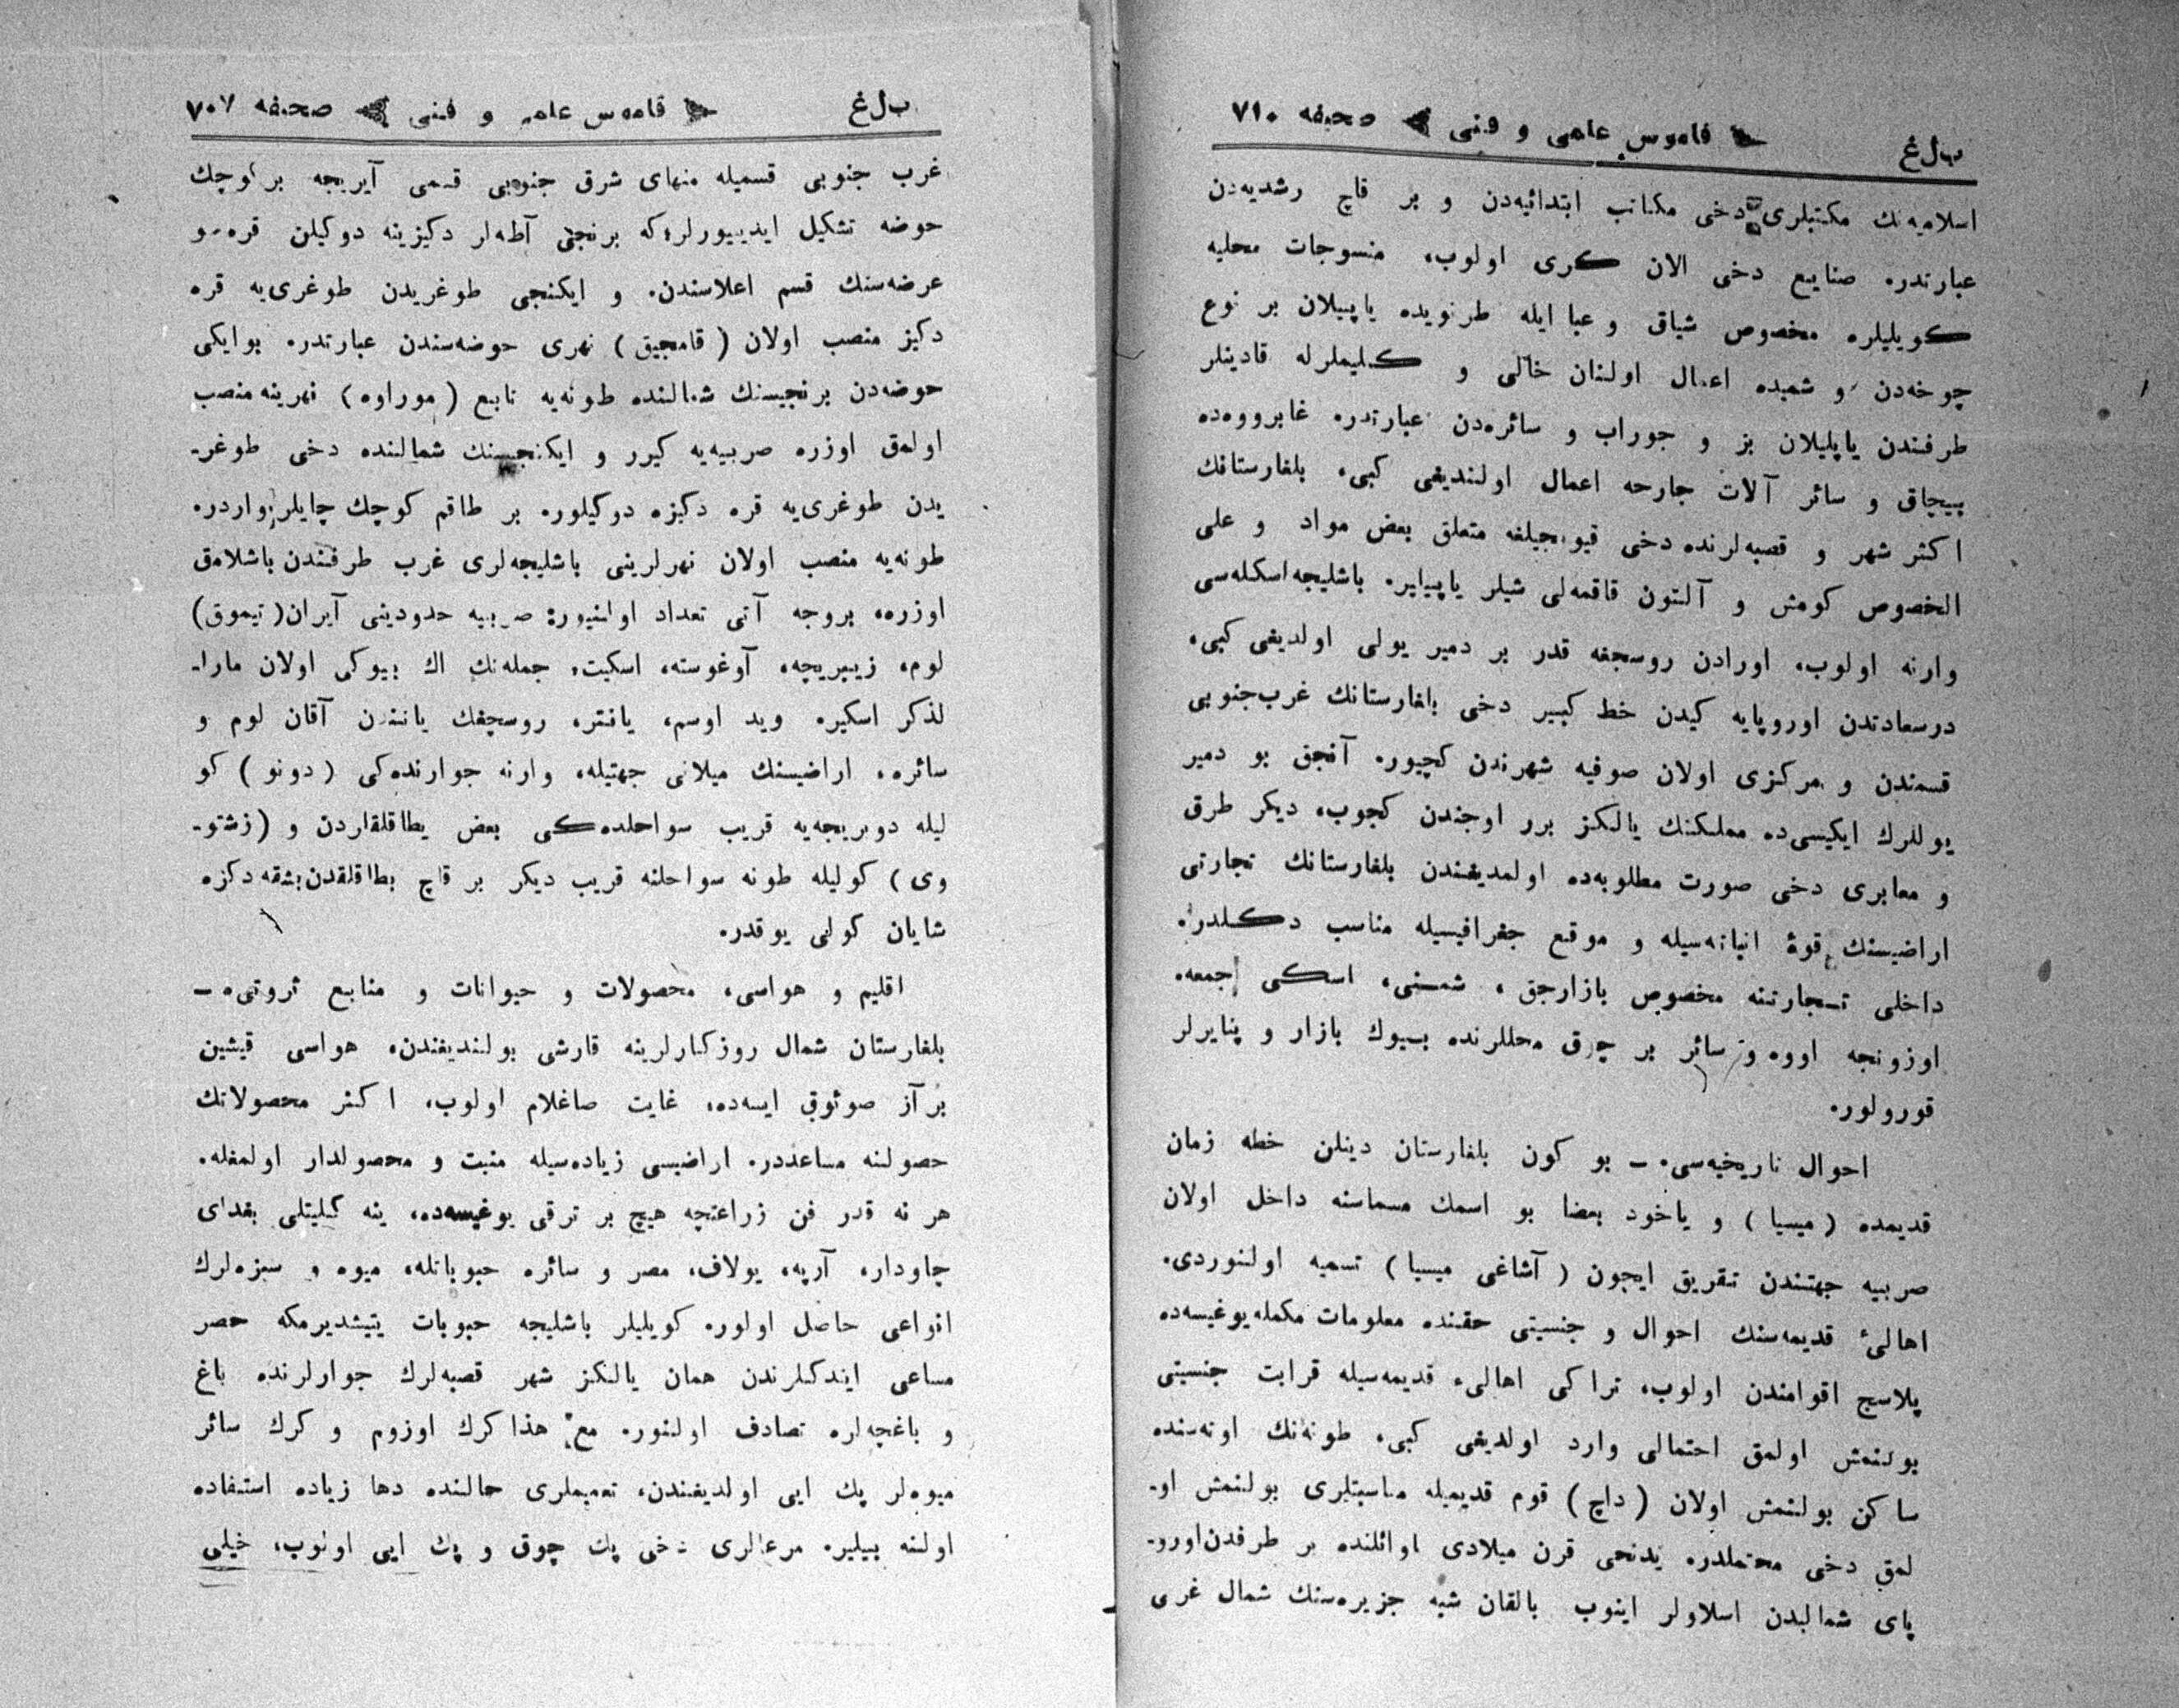 ب‌ل‌غ قاموس علمی و فنی صحیفه ٧١٠
اسلامیه‌نك مکتبلری دخی مکاتب ابتدائیه‌دن و بر قاچ رشدیه‌دن
عبارتدر. صنایع دخی الان کری اولوب، منسوجات محلیه
کویلیلره مخصوص شیاق و عبا ایله طرنویده یاپیلان بر نوع
چوخه‌دن و شمیده اعمال اولنان خالی و کلیملرله قادینلر
طرفندن یاپلیلان بز و جوراب و سائره‌دن عبارتدر. غابرووه‌ده
پیچاق و سائر آلات جارحه اعمال اولندیغی کبی، بلغارستانك
اکثر شهر و قصبه‌لرنده دخی قیومجیلغه متعلق بعض مواد و علی
الخصوص کومش و آلتون قاقمه‌لی شیلر یاپیلیر. باشلیجه اسکله‌سی
وارنه اولوب، اورادن روسجغه قدر بر دمیر یولی اولدیغی کبی،
درسعادتدن اوروپایه کیدن خط کبیر دخی بلغارستانك غرب‌جنوبی
قسمندن و مرکزی اولان صوفیه شهرندن کچیور. آنجق بو دمیر
یوللرك ایکیسی‌ده مملکتك یالکز برر اوجندن کچوب، دیکر طرق
و معابری دخی صورت مطلوبه‌ده اولمدیغندن بلغارستانك تجارتی
اراضیسنك قوۀ انباتیه‌سیله و موقع جغرافیسیله مناسب دکلدر.
داخلی تجارتنه مخصوص بازارجق، شمنی، اسکی جمعه،
اوزونجه اووه و سائر بر چوق محللرنده بیوك بازار و پنایرلر
قورولور.
احوال تاریخیه‌سی. ـ بو کون بلغارستان دینلن خطه زمان
قدیمده (میسیا) و یاخود بعضا بو اسمك مسماسنه داخل اولان
صربیه جهتندن تفریق ایچون (آشاغی میسیا) تسمیه اولنوردی.
اهالیٔ قدیمه‌سنك احوال و جنسیتی حقنده معلومات مکمله یوغیسه‌ده
پلاسج اقوامندن اولوب، تراکی اهالیء قدیمه‌سیله قرابت جنسیتی
بولنمش اولمق احتمالی وارد اولدیغی کبی، طونه‌نك اوته‌سنده
ساکن بولنمش اولان (داچ) قوم قدیمیله مناسبتلری بولنمش او-
لمق دخی محتملدر. یدنجی قرن میلادی اوائلنده بر طرفدن اورو-
پای شمالیدن اسلاولر اینوب بالقان شبه جزیره‌سنك شمال غربی
ب‌ل‌غ قاموس علمی و فنی صحیفه ٧٠٧
غرب جنوبی قسمیله منهای شرق جنوبی قسمی آیریجه بر کوچك
حوضه تشکیل ایدییورلرکه برنجی آطه‌لر دکیزینه دوکیلن قره‌صو
عرضه‌سنك قسم اعلاسندن. و ایکنجی طوغریدن طوغری‌یه قره
دکیز منصب اولان (قامچیق) نهری حوضه‌سندن عبارتدر. بوایکی
حوضه‌دن برنجیسنك شمالنده طونه‌یه تابع (موراوه) نهرینه منصب
اولمق اوزره صربیه‌یه کیرر و ایکنجیسنك شمالنده دخی طوغر-
یدن طوغری‌یه قره دکیزه دوکیلور. بر طاقم کوچك چایلر واردر.
طونه‌یه منصب اولان نهرلرینی باشلیجه‌لری غرب طرفندن باشلامق
اوزره، بروجه آتی تعداد اولنیور: صربیه حدودینی آیران (تیموق)
لوم، زیبریچه، آوغوسته، اسکیت، جمله‌نك اك بیوکی اولان مارا-
لذکر اسکیر. وید اوسم، یانتره روسچغك یانندن آقان لوم و
سائره، اراضیسنك میلانی جهتیله، وارنه جوارنده‌کی (دونو) کو
لیله دوبریجه‌یه قریب سواحلده‌کی بعض بطاقلقلردن و (زشتو-
وی) کولیله طونه سواحلنه قریب دیکر بر قاچ بطاقلقدن بشقه دکزه
شایان کولی یوقدر.
اقلیم و هواسی، محصولات و حیوانات و منابع ثروتی. ـ
بلغارستان شمال روزکارلرینه قارشی بولندیغندن، هواسی قیشین
بر آز صوئوق ایسه‌ده، غایت صاغلام اولوب، اکثر محصولاتك
حصولنه مساعددر. اراضیسی زیاده‌سیله منبت و محصولدار اولمغله.
هر نه قدر فن زراعتچه هیچ بر ترقی یوغیسه‌ده، ینه کلیتلی بغدای
چاودار، آرپه، یولاف، مصر و سائره حبوباتله، میوه و سبزه‌لرك
انواعی حاصل اولور. کویلیلر باشلیجه حبوبات یتیشدیرمکه حصر
مساعی ایتدکلرندن همان یالکز شهر قصبه‌لرك جوارلرنده باغ
و باغچه‌لره تصادف اولنور. مع هذا کرك اوزوم و کرك سائر
میوه‌لر پك ایی اولدیغندن، تعمیملری حالنده دها زیاده استفاده
اولنه بیلیر. مرعالری دخی پك چوق و پك ایی اولوب، خیلی